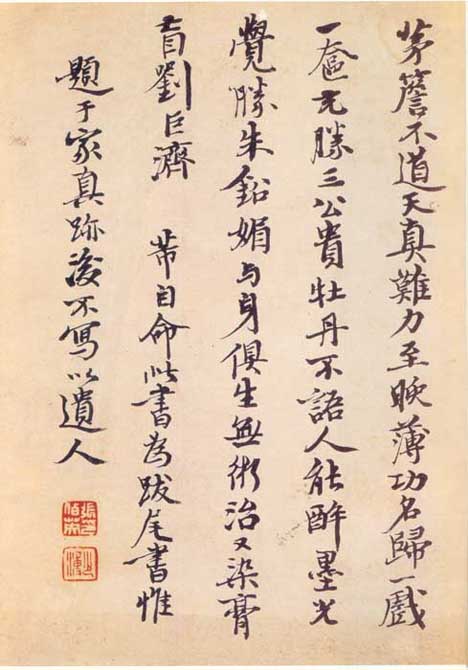 茅簷不道天真難力至晚薄功名歸一戲
一奩尤勝三公貴牡丹不語人能醉墨光
覺勝朱鉛媚與身俱生無術治又染膏
肓劉巨濟 芾自命此書為跋尾書惟
題于家真跡後不寫以遺人